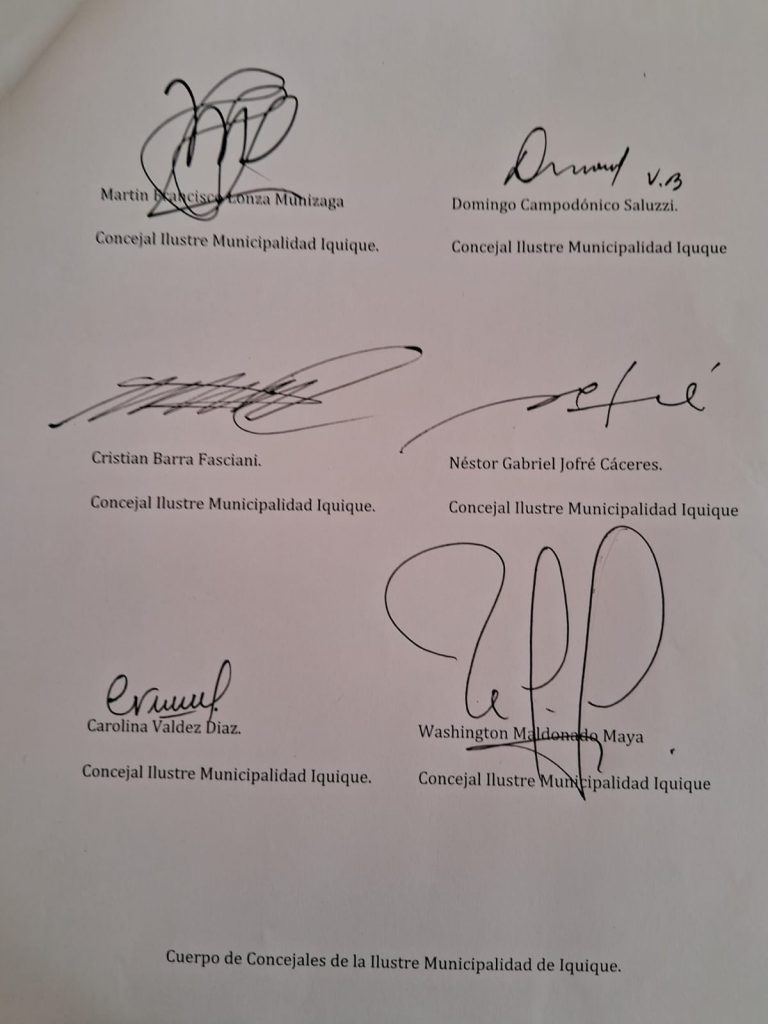 V.B
Martin Francisco Lonza Munizaga
Domingo Campodónico Saluzzi.
Concejal Ilustre Municipalidad Iquique.
Concejal Ilustre Municipalidad Iquque
Jofré
Cristian Barra Fasciani.
Néstor Gabriel Jofré Cáceres.
Concejal Ilustre Municipalidad Iquique.
Concejal Ilustre Municipalidad Iquique
Carolina Valdez Diaz.
Washington Maldonado Maya
Concejal Ilustre Municipalidad Iquique.
Concejal Ilustre Municipalidad Iquique
Cuerpo de Concejales de la Ilustre Municipalidad de Iquique.